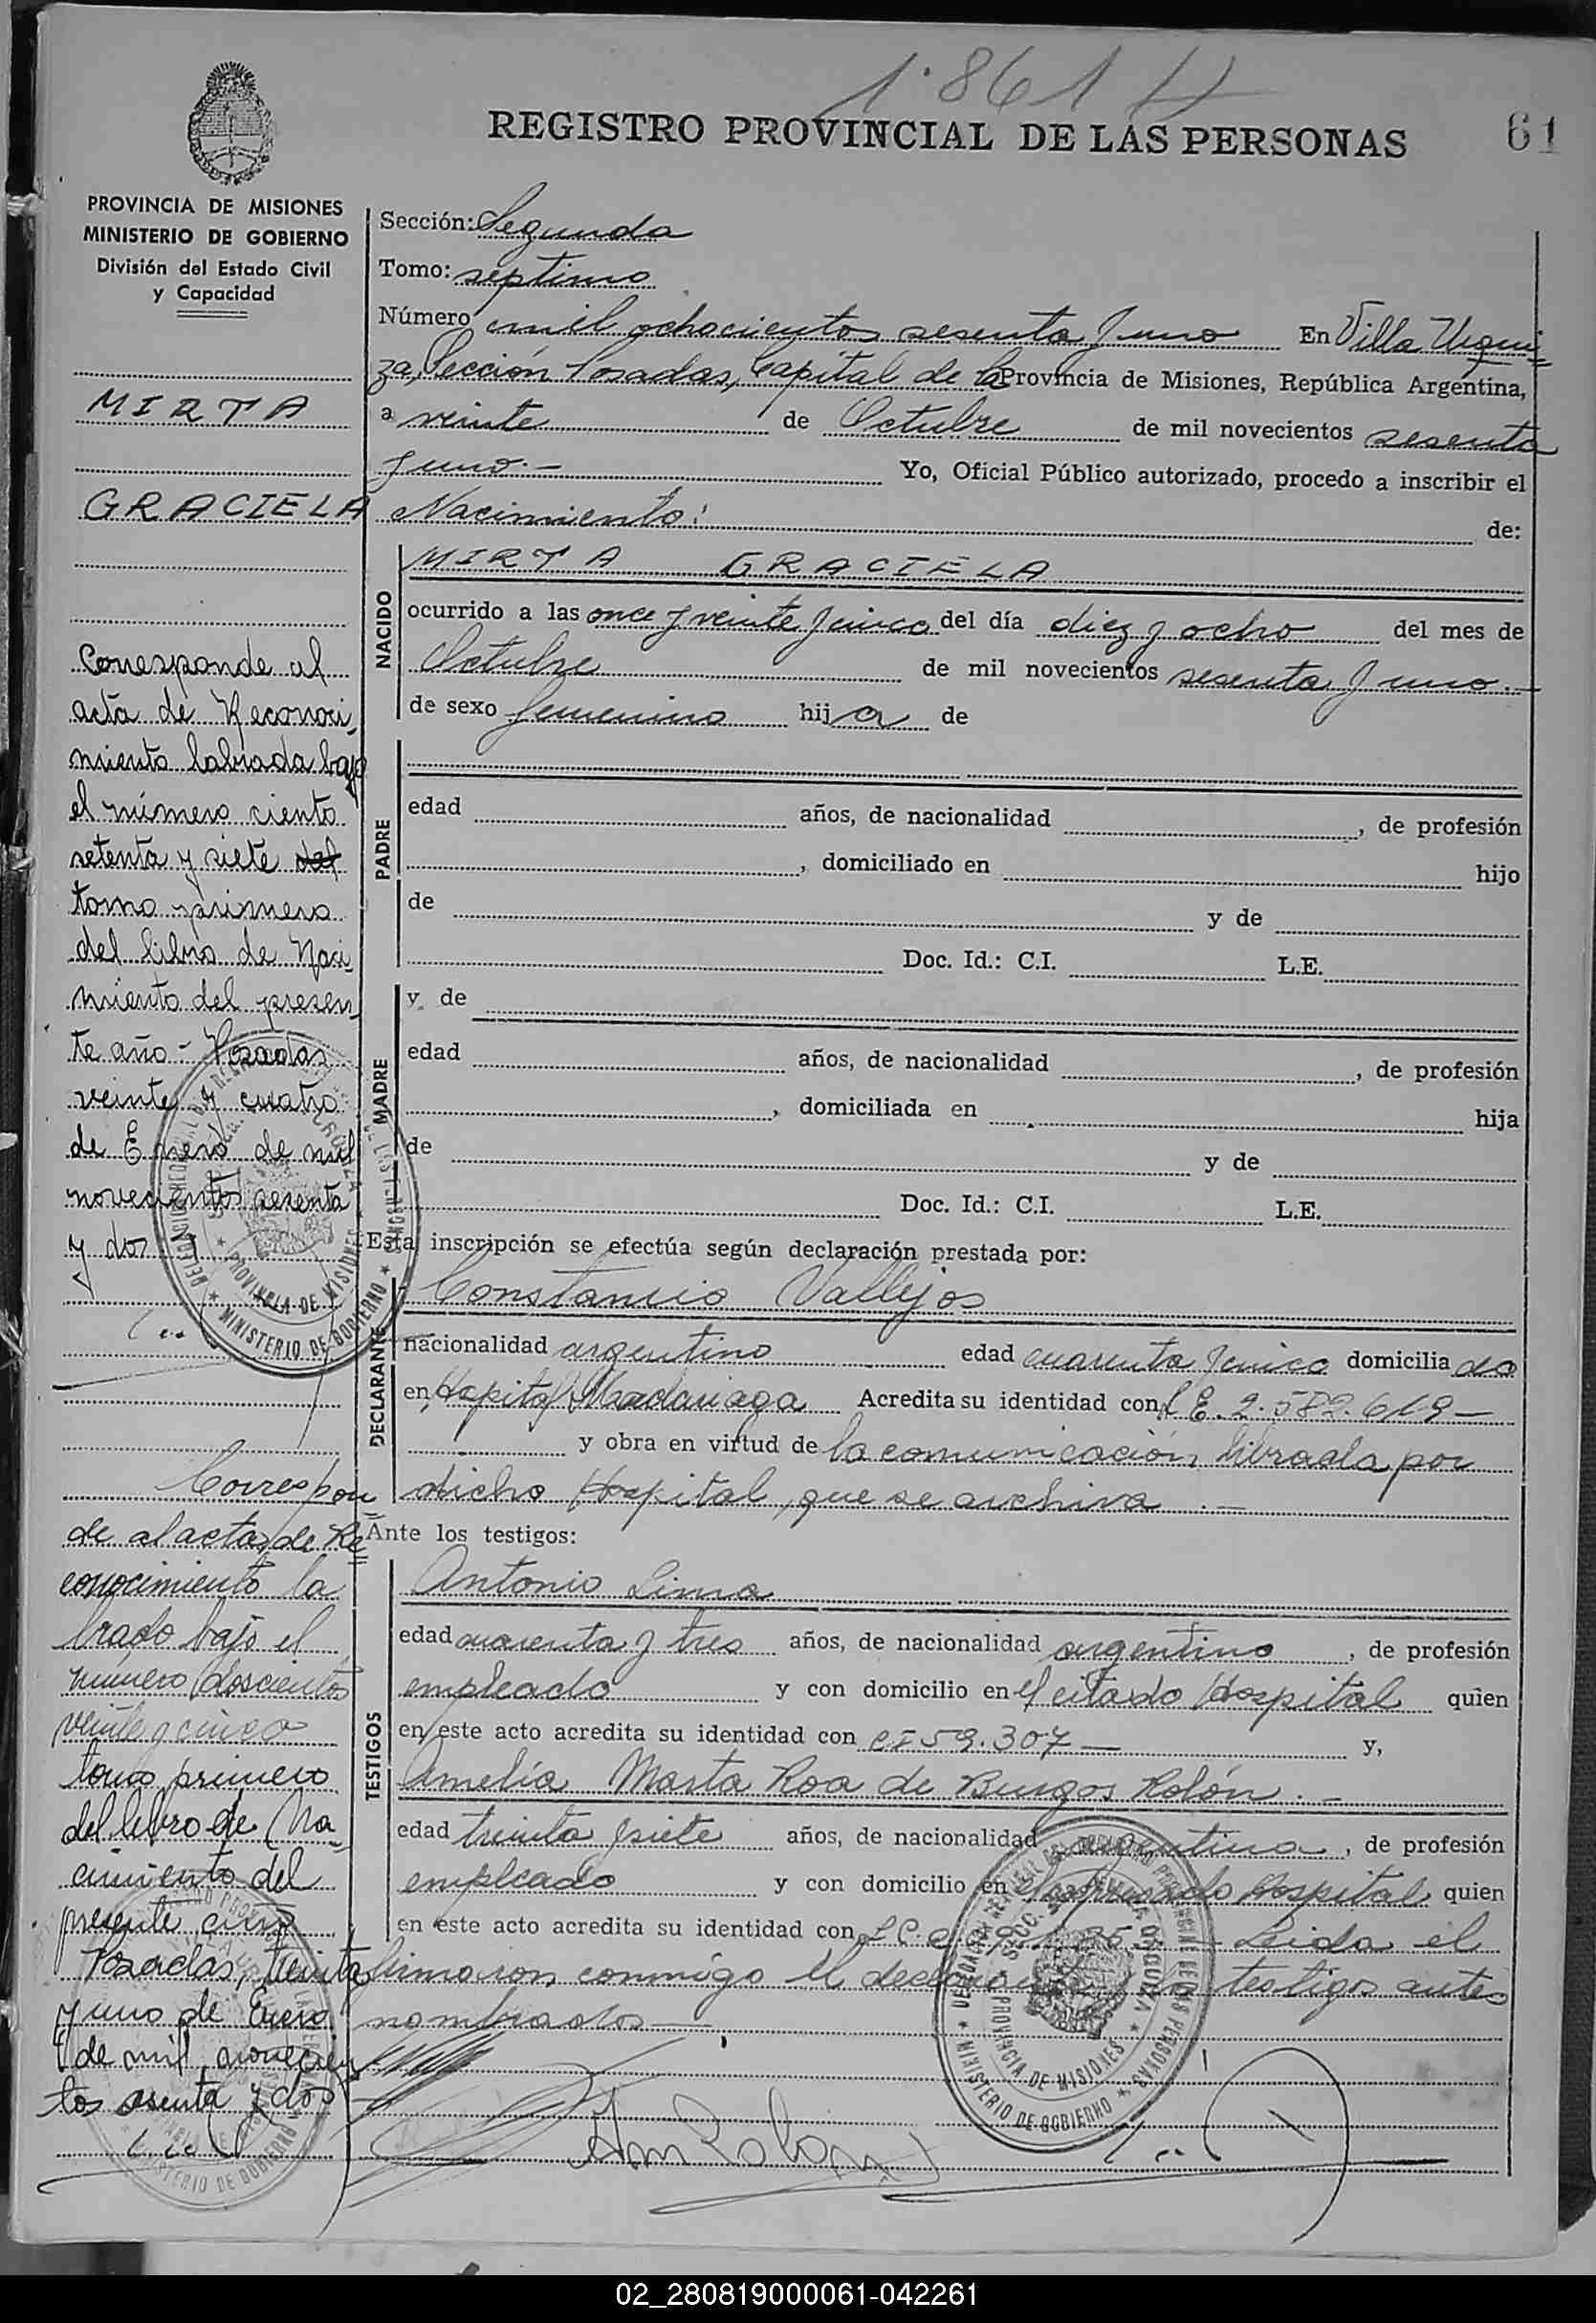 1.861
REGISTRO PROVINCIAL DE LAS PERSONAS
61
PROVINCIA DE MISIONES
MINISTERIO DE GOBIERNO
División del Estado Civil
y Capacidad
MIRTA
GRACIELA
Corresponde al
acta de Reconoci
miento labrada bajo
el número ciento
setenta y siete del
tomo primero
del libro de Naci
miento del presen
te año - Posadas
veinte y cuatro
de Enero de mil
novecientos sesenta
y dos
Correspon
de al acta de Re
conocimiento la
brado bajo el
número doscientos
veinte y cinco
tomo primero
del libro de Na
cimiento del
presente año
Posadas, treinta
y uno de Enero
de mil novecien
tos sesenta y dos
Sección: Segunda
Tomo: septimo
Número mil ochocientos sesenta y uno En Villa Urqui
za, Sección Posadas, Capital de la Provincia de Misiones, República Argentina,
a veinte de Octubre de mil novecientos sesenta
y uno.- Yo, Oficial Público autorizado, procedo a inscribir el
Nacimiento: de:
NACIDO
MIRTA GRACIELA
ocurrido a las once y veinte y cinco del día diez y ocho del mes de
Octubre de mil novecientos sesenta y uno.-
de sexo femenino hija de
PADRE
edad años, de nacionalidad , de profesión
, domiciliado en hijo
de y de
Doc. Id.: C.I. L.E.
MADRE
y de
edad años, de nacionalidad , de profesión
, domiciliada en hija
de y de
Doc. Id.: C.I. L.E.
Esta inscripción se efectúa según declaración prestada por:
DECLARANTE
Constancio Vallejos
nacionalidad argentino edad cuarenta y cinco domiciliado
en Hospital Madariaga Acredita su identidad con L E. 2.582.619-
y obra en virtud de la comunicación librada por
dicho Hospital, que se archiva.-
Ante los testigos:
TESTIGOS
Antonio Lima
edad cuarenta y tres años, de nacionalidad argentino, de profesión
empleado y con domicilio en el citado Hospital quien
en este acto acredita su identidad con CI 59.307- y,
Amelia Marta Roa de Burgos Rolón.-
edad treinta y siete años, de nacionalidad argentina, de profesión
empleado y con domicilio en el Hospital quien
en este acto acredita su identidad con L C. Leida el
firmaron conmigo el testigos antes
nombrados
DELEGACION REGIONAL DEL REGISTRO PROVINCIAL DE LAS PERSONAS
PROVINCIA DE MISIONES
MINISTERIO DE GOBIERNO
02_280819000061-042261